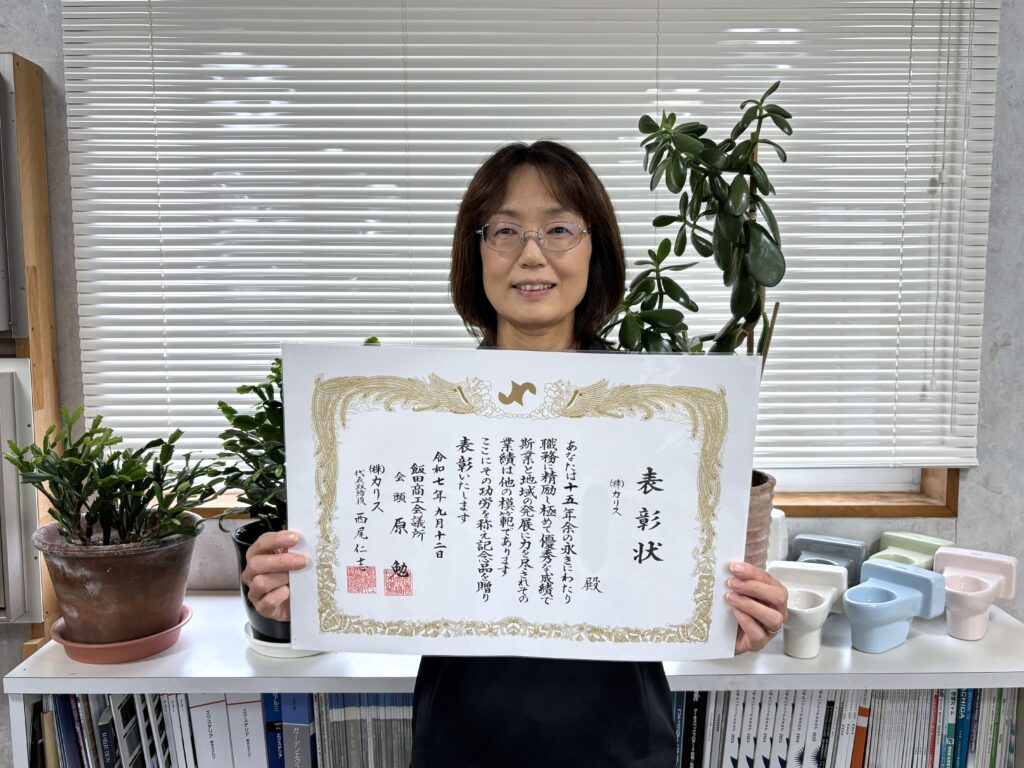 表彰状
(株)カリス
殿
あなたは十五年余の永きにわたり
職務に精励し極めて優秀な成績で
斯業と地域の発展に力を尽されその
業績は他の模範であります
ここにその功労を称え記念品を贈り
表彰いたします
令和七年九月十二日
飯田商工会議所
会頭 原 勉
(株)カリス
代表取締役 西尾仁志
エクステリア
エクステリア